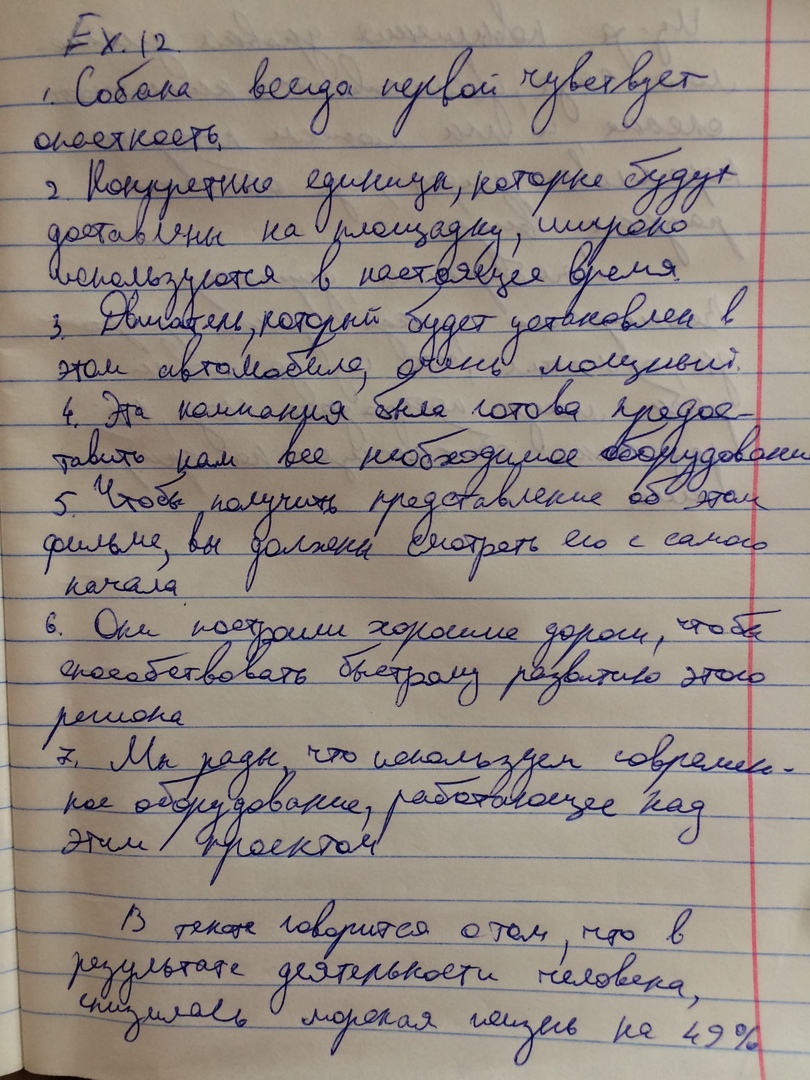 Ex. 12.
1. Собака всегда первой чувствует
опастность.
2. Конкретные единицы, которые будут
доставлены на площадку, широко
используются в настоящее время.
3. Двигатель, который будет установлен в
этом автомобиле, очень мощный.
4. Эта компания была готова предос-
тавить нам все необходимое оборудование
5. Чтобы получить представление об этом
фильме, вы должны смотреть его с самого
начала.
6. Они построили хорошие дороги, чтобы
способствовать быстрому развитию этого
региона
7. Мы рады, что используем современ-
ное оборудование, работающее над
этим проектом
В тексте говорится о том, что в
результате деятельности человека,
снизилась морская жизнь на 49%